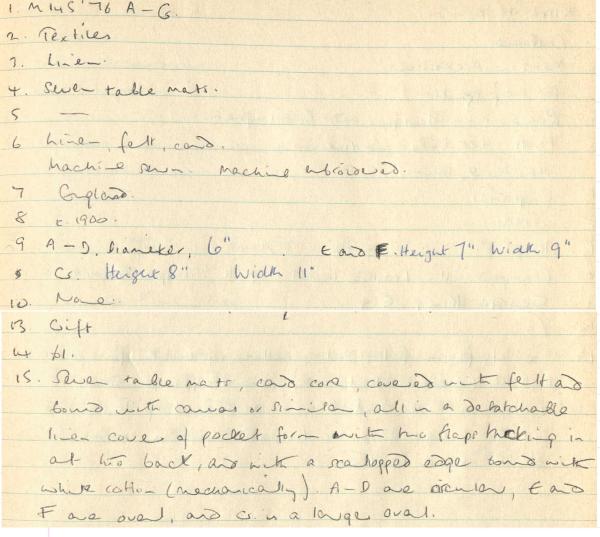 1. M 145 '76 A-G.
2. Textiles
3. Linen.
4. Seven table mats.
5 —
6 Linen, felt, card.
Machine sewn. Machine embroidered.
7 England.
8 c. 1900.
9 A-D. Diameter, 6". E and F. Height 7" Width 9"
G. Height 8" Width 11"
10. None.
13 Gift
14 £1.
15. Seven table mats, card core, covered with felt and
bound with canvas or similar, all in a detatchable
linen cover of pocket form with two flaps tucking in
at the back, and with a scalloped edge bound with
white cotton (mechanically). A-D are circular, E and
F are oval, and G. is a larger oval.